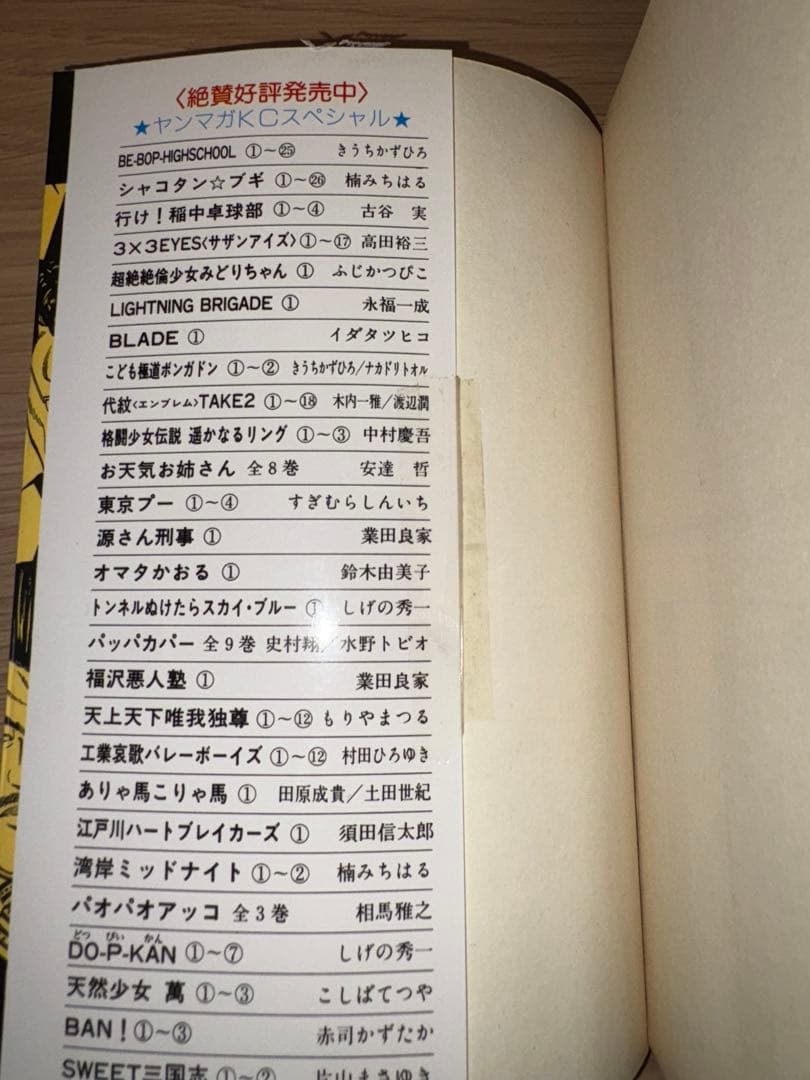 〈絶賛好評発売中〉
★ヤンマガKCスペシャル★
BE-BOP-HIGHSCHOOL ①〜㉕ きうちかずひろ
シャコタン☆ブギ ①〜㉖ 楠みちはる
行け！稲中卓球部 ①〜④ 古谷 実
3×3EYES〈サザンアイズ〉①〜⑰ 高田裕三
超絶絶倫少女みどりちゃん ① ふじかつぴこ
LIGHTNING BRIGADE ① 永福一成
BLADE ① イダタツヒコ
こども極道ボンガドン ①〜② きうちかずひろ／ナカドリトオル
代紋〈エンブレム〉TAKE2 ①〜⑱ 木内一雅／渡辺潤
格闘少女伝説 遥かなるリング ①〜③ 中村慶吾
お天気お姉さん 全8巻 安達 哲
東京プー ①〜④ すぎむらしんいち
源さん刑事 ① 業田良家
オマタかおる ① 鈴木由美子
トンネルぬけたらスカイ・ブルー ① しげの秀一
パッパカパー 全9巻 史村翔／水野トビオ
福沢悪人塾 ① 業田良家
天上天下唯我独尊 ①〜⑫ もりやまつる
工業哀歌バレーボーイズ ①〜⑫ 村田ひろゆき
ありゃ馬こりゃ馬 ① 田原成貴／土田世紀
江戸川ハートブレイカーズ ① 須田信太郎
湾岸ミッドナイト ①〜② 楠みちはる
パオパオアッコ 全3巻 相馬雅之
どっ ぴい かん
DO-P-KAN ①〜⑦ しげの秀一
天然少女 萬 ①〜③ こしばてつや
BAN！①〜③ 赤司かずたか
SWEET三国志 ①〜② 片山まさゆき